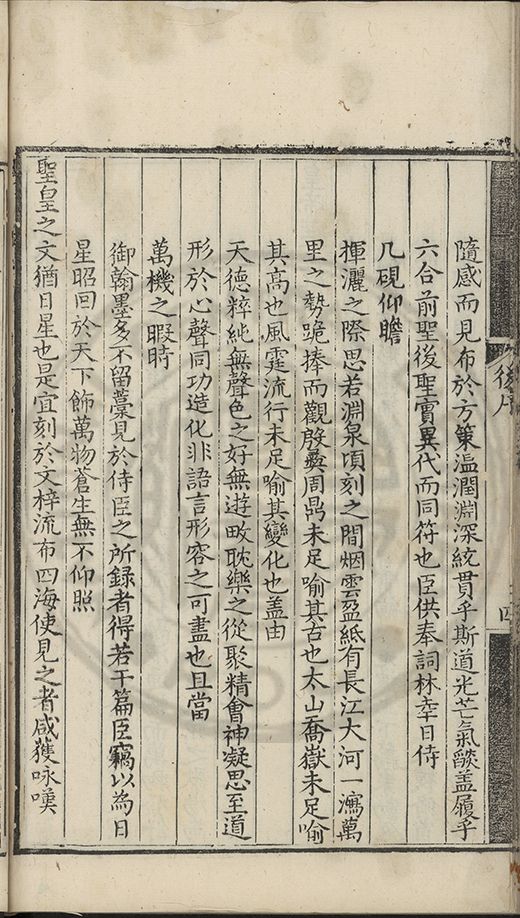 隨感而見布於方策溫潤淵深統貫乎斯道光芒氣燄盖履乎
六合前聖後聖實異代而同符也臣供奉詞林幸日侍
几硯仰瞻
揮灑之際思若淵泉頃刻之間烟雲盈紙有長江大河一瀉萬
里之勢跪捧而觀殷彞周鼎未足喻其古也太山喬嶽未足喻
其高也風霆流行未足喻其變化也盖由
天德粹純無聲色之好無遊畋耽樂之從聚精會神凝思至道
形於心聲同功造化非語言形容之可盡也且當
萬機之暇時
御翰墨多不留藁見於侍臣之所録者得若干篇臣竊以為日
星昭回於天下飾萬物蒼生無不仰照
聖皇之文猶日星也是宜刻於文梓流布四海使見之者咸獲咏嘆
後序
四